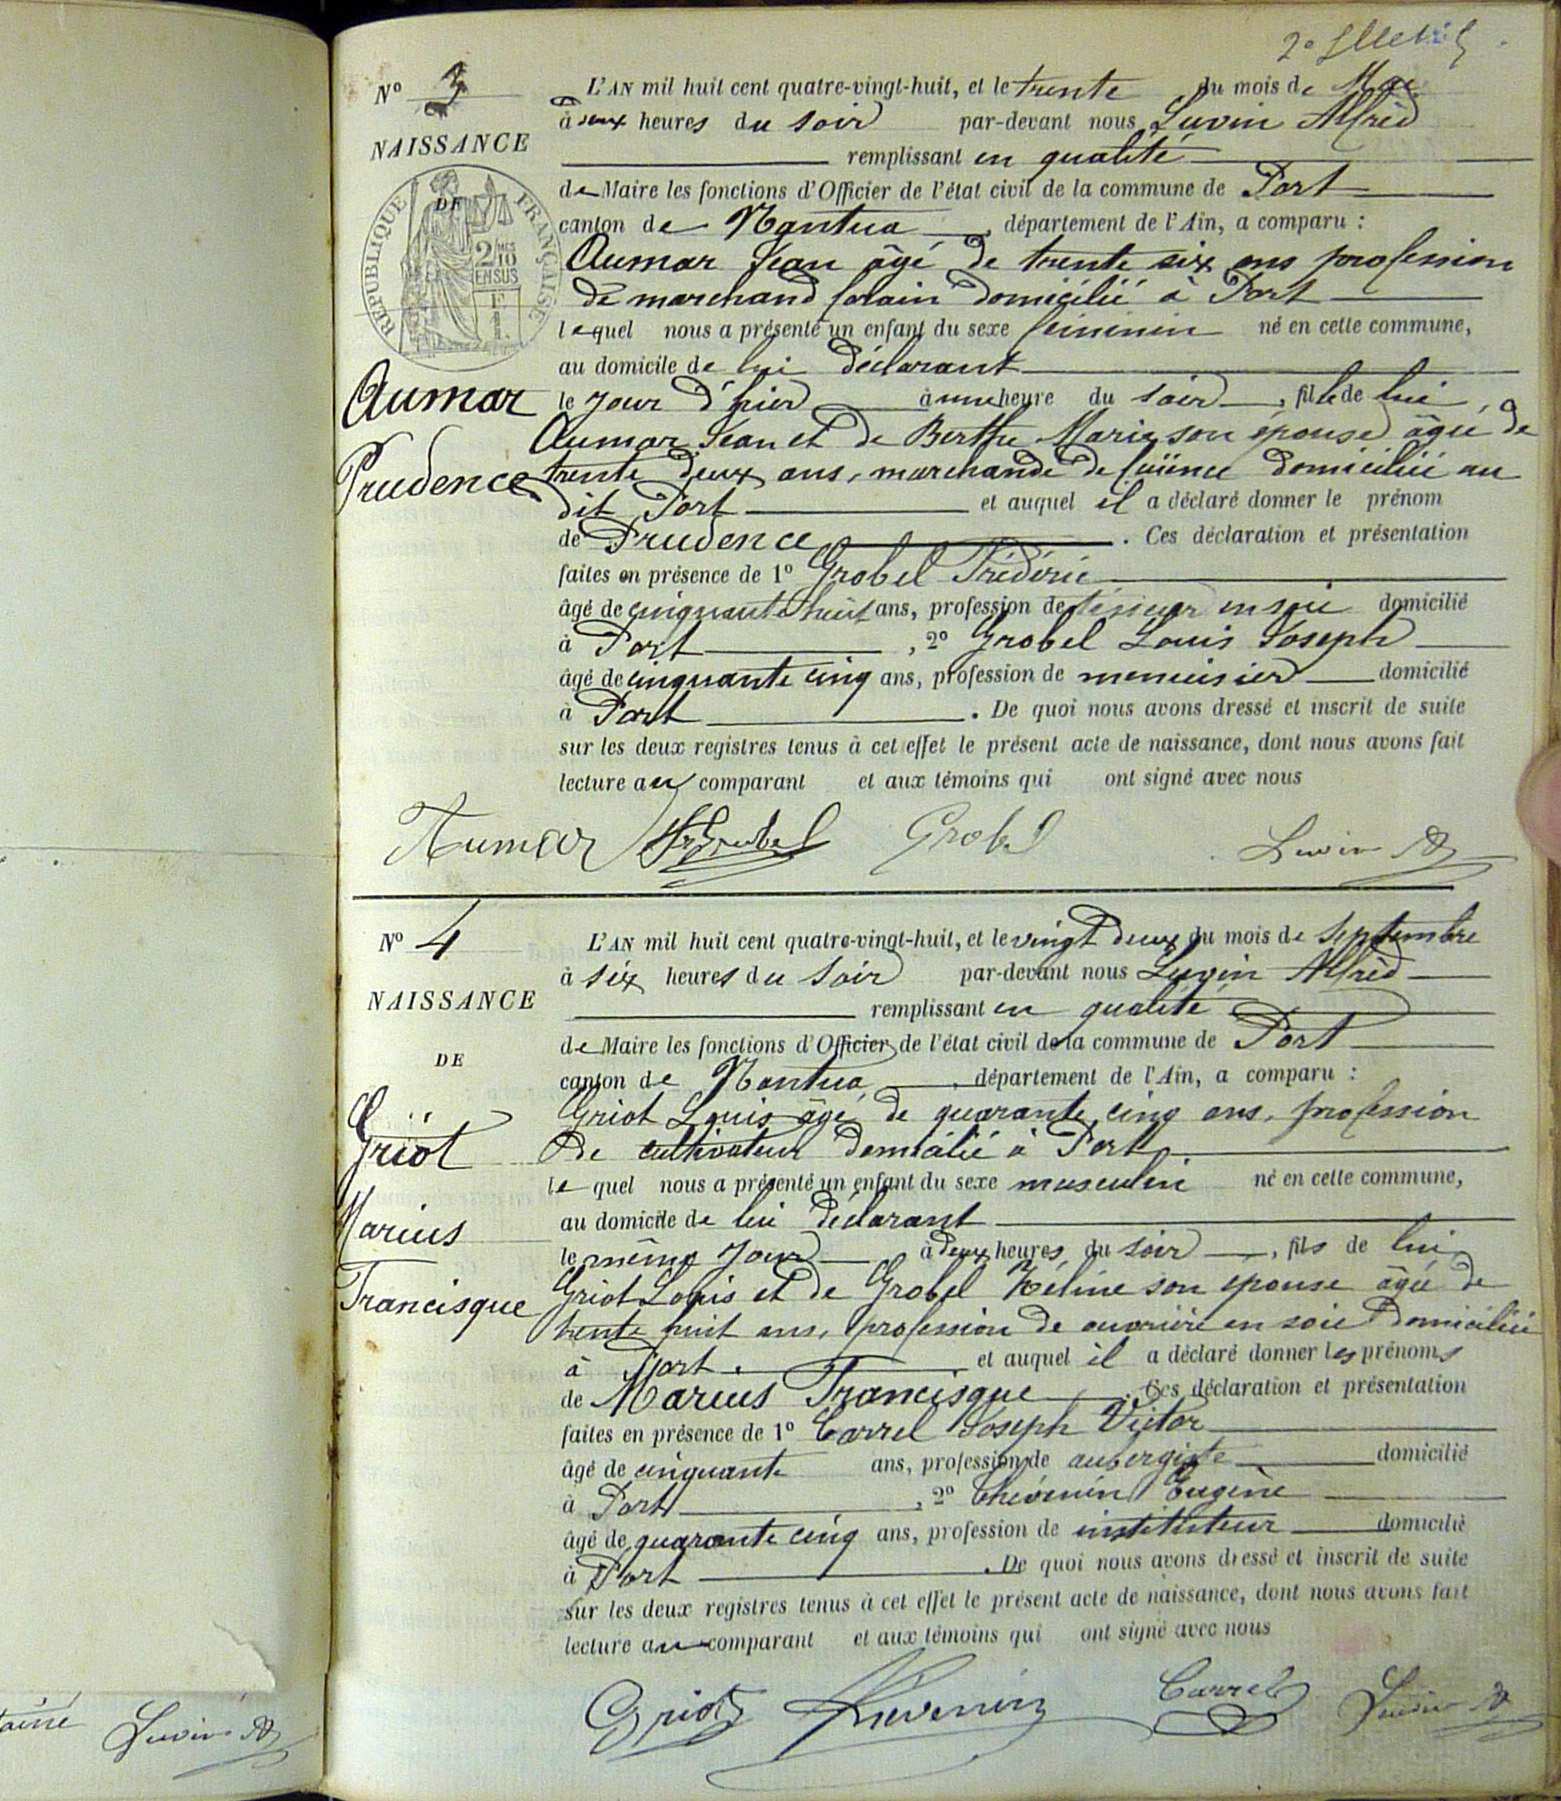 2e
N° 3
NAISSANCE
DE
REPUBLIQUE FRANÇAISE
2/10 EN SUS
Aumar
Prudence
L'AN mil huit cent quatre-vingt-huit, et le trente du mois de Mai
à deux heures du soir par-devant nous Luvin Alfred
remplissant en qualité
de Maire les fonctions d'Officier de l'état civil de la commune de Port
canton de Nantua, département de l'Ain, a comparu :
Aumar Jean âgé de trente six ans profession
de marchand forain domicilié à Port
lequel nous a présenté un enfant du sexe féminin né en cette commune,
au domicile de lui déclarant
le jour d'hier à une heure du soir, fille de lui
Aumar Jean et de Berthe Marie son épouse âgée de
trente deux ans, marchande de faïence domiciliée au
dit Port et auquel il a déclaré donner le prénom
de Prudence. Ces déclaration et présentation
faites en présence de 1° Grobel Frédéric
âgé de cinquante huit ans, profession de tisseur en soie domicilié
à Port, 2° Grobel Louis Joseph
âgé de cinquante cinq ans, profession de menuisier domicilié
à Port. De quoi nous avons dressé et inscrit de suite
sur les deux registres tenus à cet effet le présent acte de naissance, dont nous avons fait
lecture au comparant et aux témoins qui ont signé avec nous
Aumar Fr Grobel Grobel Luvin A
N° 4
NAISSANCE
DE
Griot
Marius
Francisque
L'AN mil huit cent quatre-vingt-huit, et le vingt deux du mois de septembre
à six heures du soir par-devant nous Luvin Alfred
remplissant en qualité
de Maire les fonctions d'Officier de l'état civil de la commune de Port
canton de Nantua, département de l'Ain, a comparu :
Griot Louis âgé de quarante cinq ans, profession
de cultivateur domicilié à Port
le quel nous a présenté un enfant du sexe masculin né en cette commune,
au domicile de lui déclarant
le même jour à deux heures du soir, fils de lui
Griot Louis et de Grobel Zéline son épouse âgée de
trente huit ans, profession de ouvrière en soie domiciliée
à Port. et auquel il a déclaré donner les prénoms
de Marius Francisque. Ces déclaration et présentation
faites en présence de 1° Carrel Joseph Victor
âgé de cinquante ans, profession de aubergiste domicilié
à Port, 2° Thévenin Eugène
âgé de quarante cinq ans, profession de instituteur domicilié
à Port. De quoi nous avons dressé et inscrit de suite
sur les deux registres tenus à cet effet le présent acte de naissance, dont nous avons fait
lecture au comparant et aux témoins qui ont signé avec nous
Griot Thévenin Carrel Luvin A
Luvin A